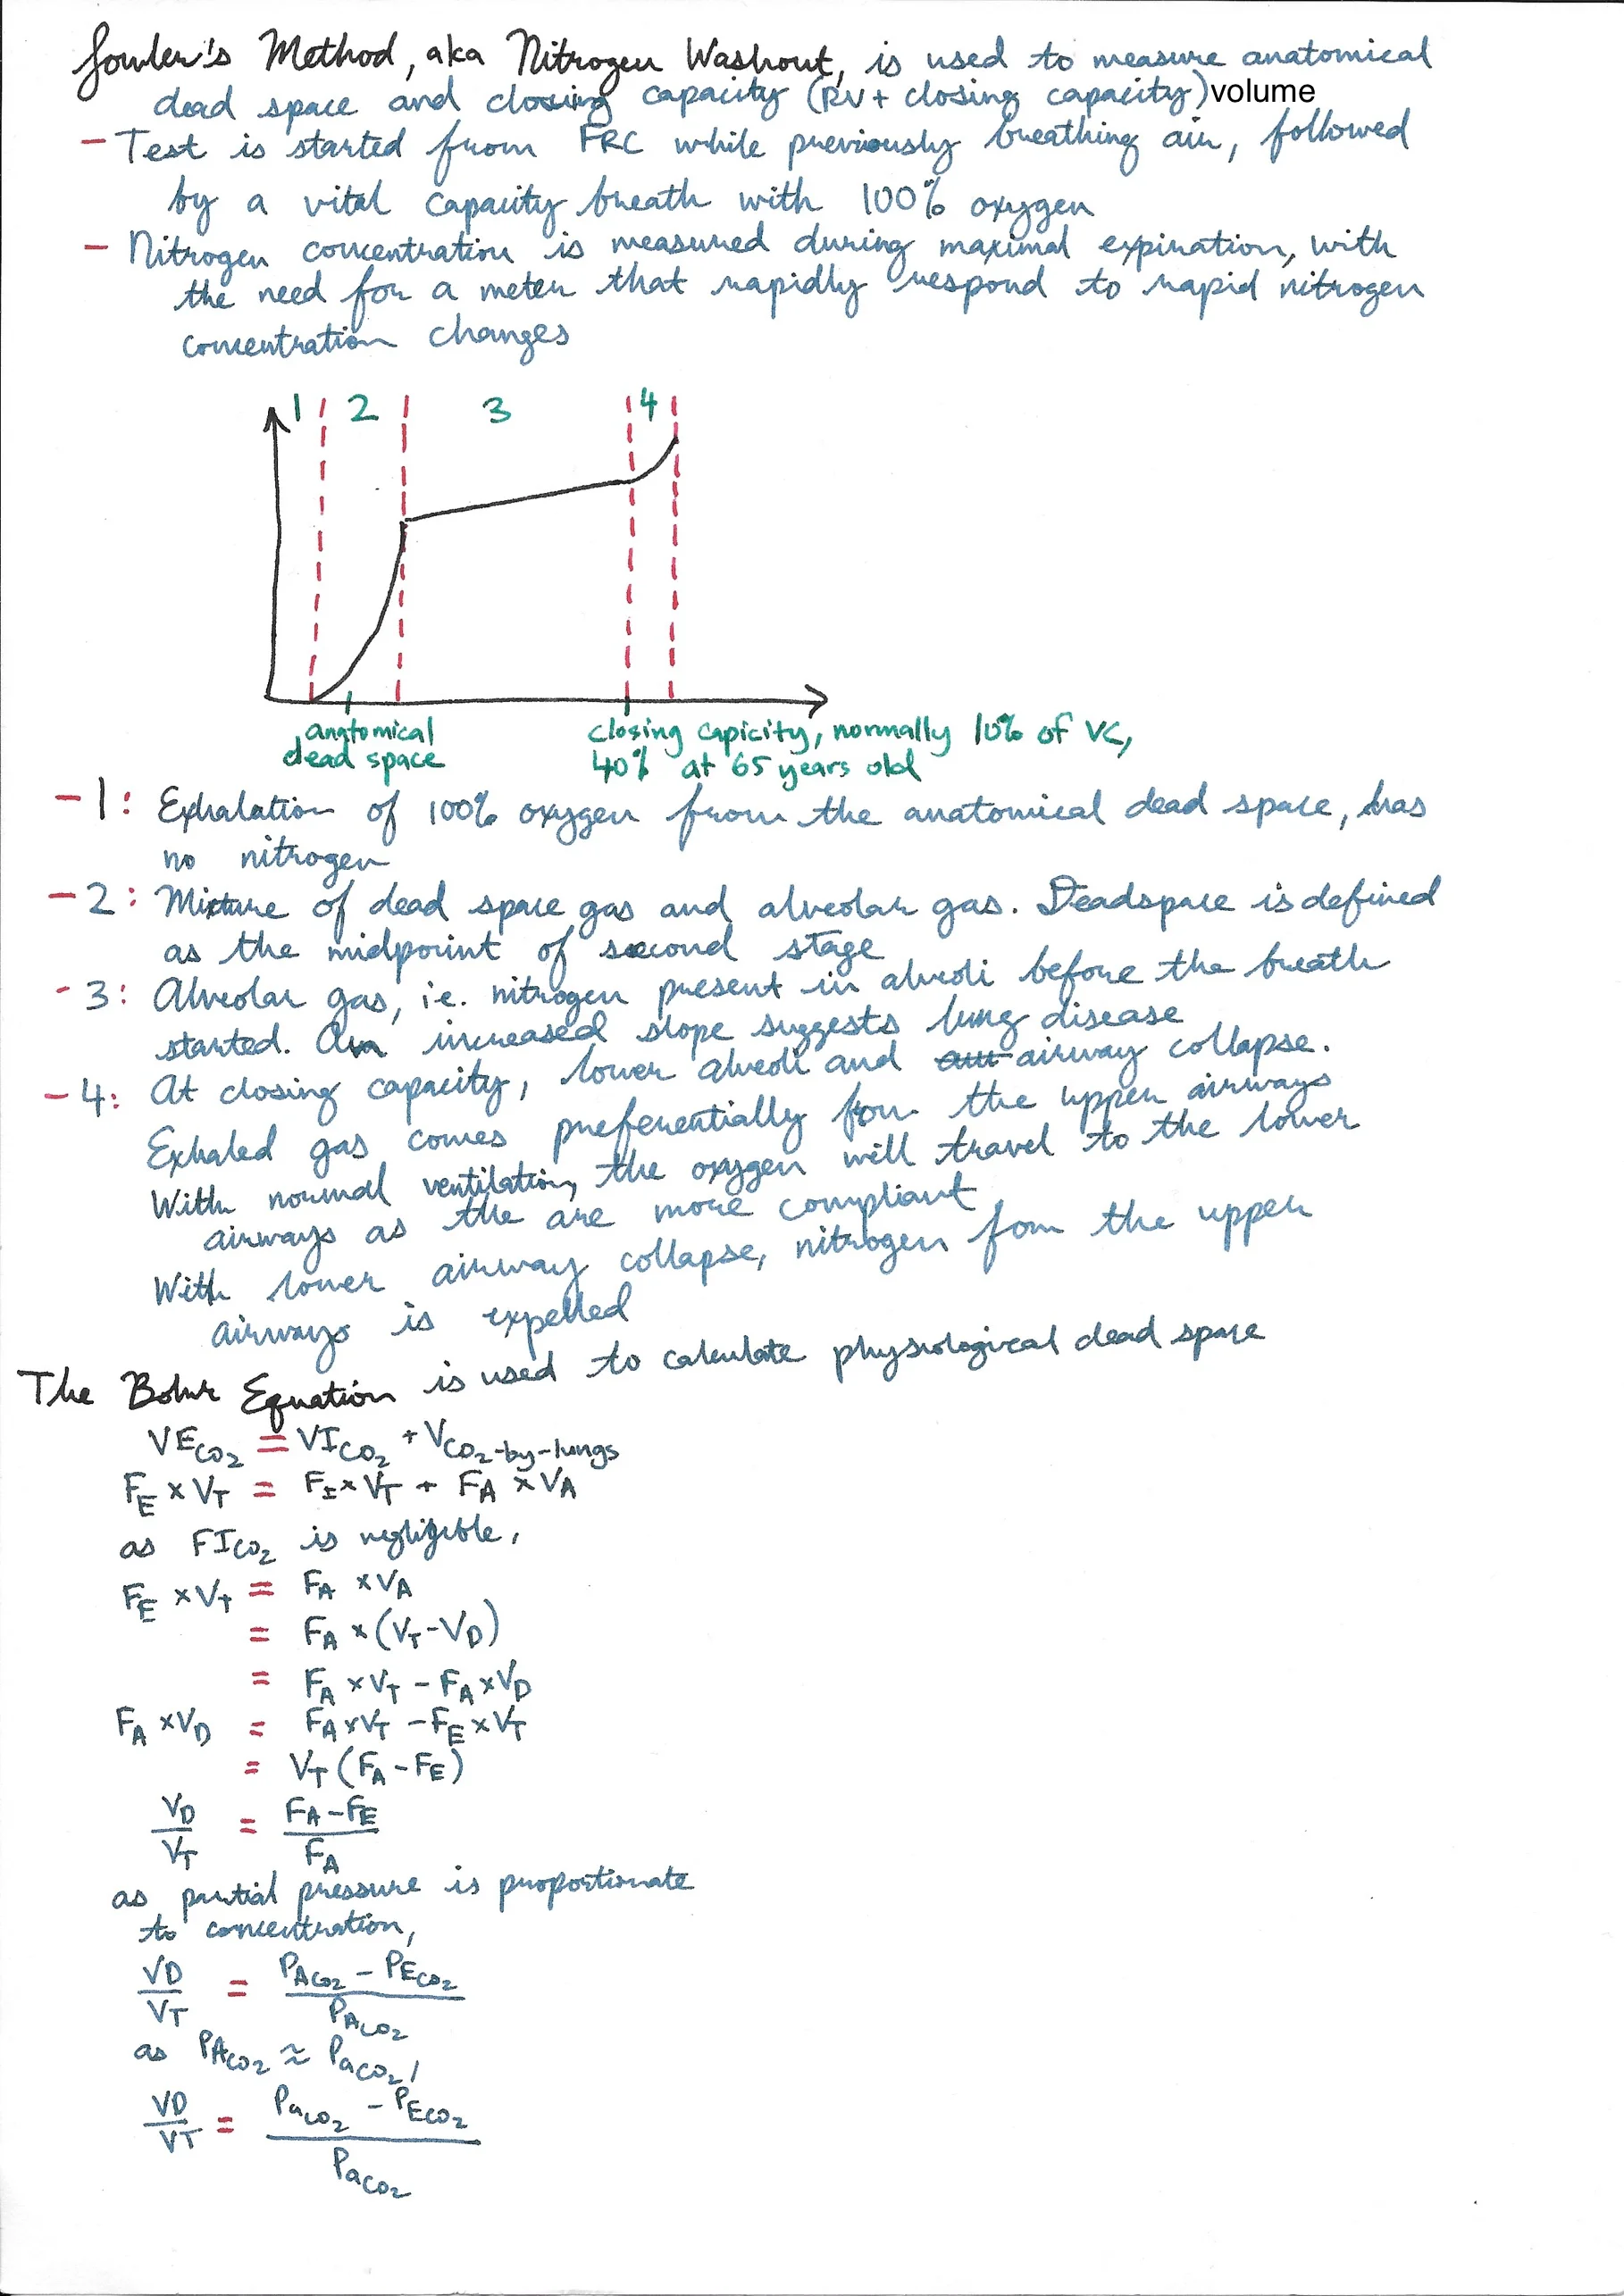 Fowler's Method, aka Nitrogen Washout, is used to measure anatomical
dead space and closing capacity (RV + closing capacity) volume
- Test is started from FRC while previously breathing air, followed
by a vital capacity breath with 100% oxygen
- Nitrogen concentration is measured during maximal expiration, with
the need for a meter that rapidly respond to rapid nitrogen
concentration changes
1 2 3 4
anatomical
dead space
closing capicity, normally 10% of VC,
40% at 65 years old
- 1: Exhalation of 100% oxygen from the anatomical dead space, has
no nitrogen
- 2: Mixture of dead space gas and alveolar gas. Deadspace is defined
as the midpoint of second stage
- 3: Alveolar gas, i.e. nitrogen present in alveoli before the breath
started. An increased slope suggests lung disease
- 4: At closing capacity, lower alveoli and airway collapse.
Exhaled gas comes preferentially from the upper airways
With normal ventilation, the oxygen will travel to the lower
airways as the are more compliant
With lower airway collapse, nitrogen fom the upper
airways is expelled
The Bohr Equation is used to calculate physiological dead space
VECO₂ = VICO₂ + VCO₂-by-lungs
FE × VT = FI × VT + FA × VA
as FICO₂ is negligible,
FE × VT = FA × VA
= FA × (VT - VD)
= FA × VT - FA × VD
FA × VD = FA × VT - FE × VT
= VT (FA - FE)
VD/VT = FA - FE/FA
as partial pressure is proportionate
to concentration,
VD/VT = PACO₂ - PECO₂/PACO₂
as PACO₂ ≈ PaCO₂,
VD/VT = PaCO₂ - PECO₂/PaCO₂